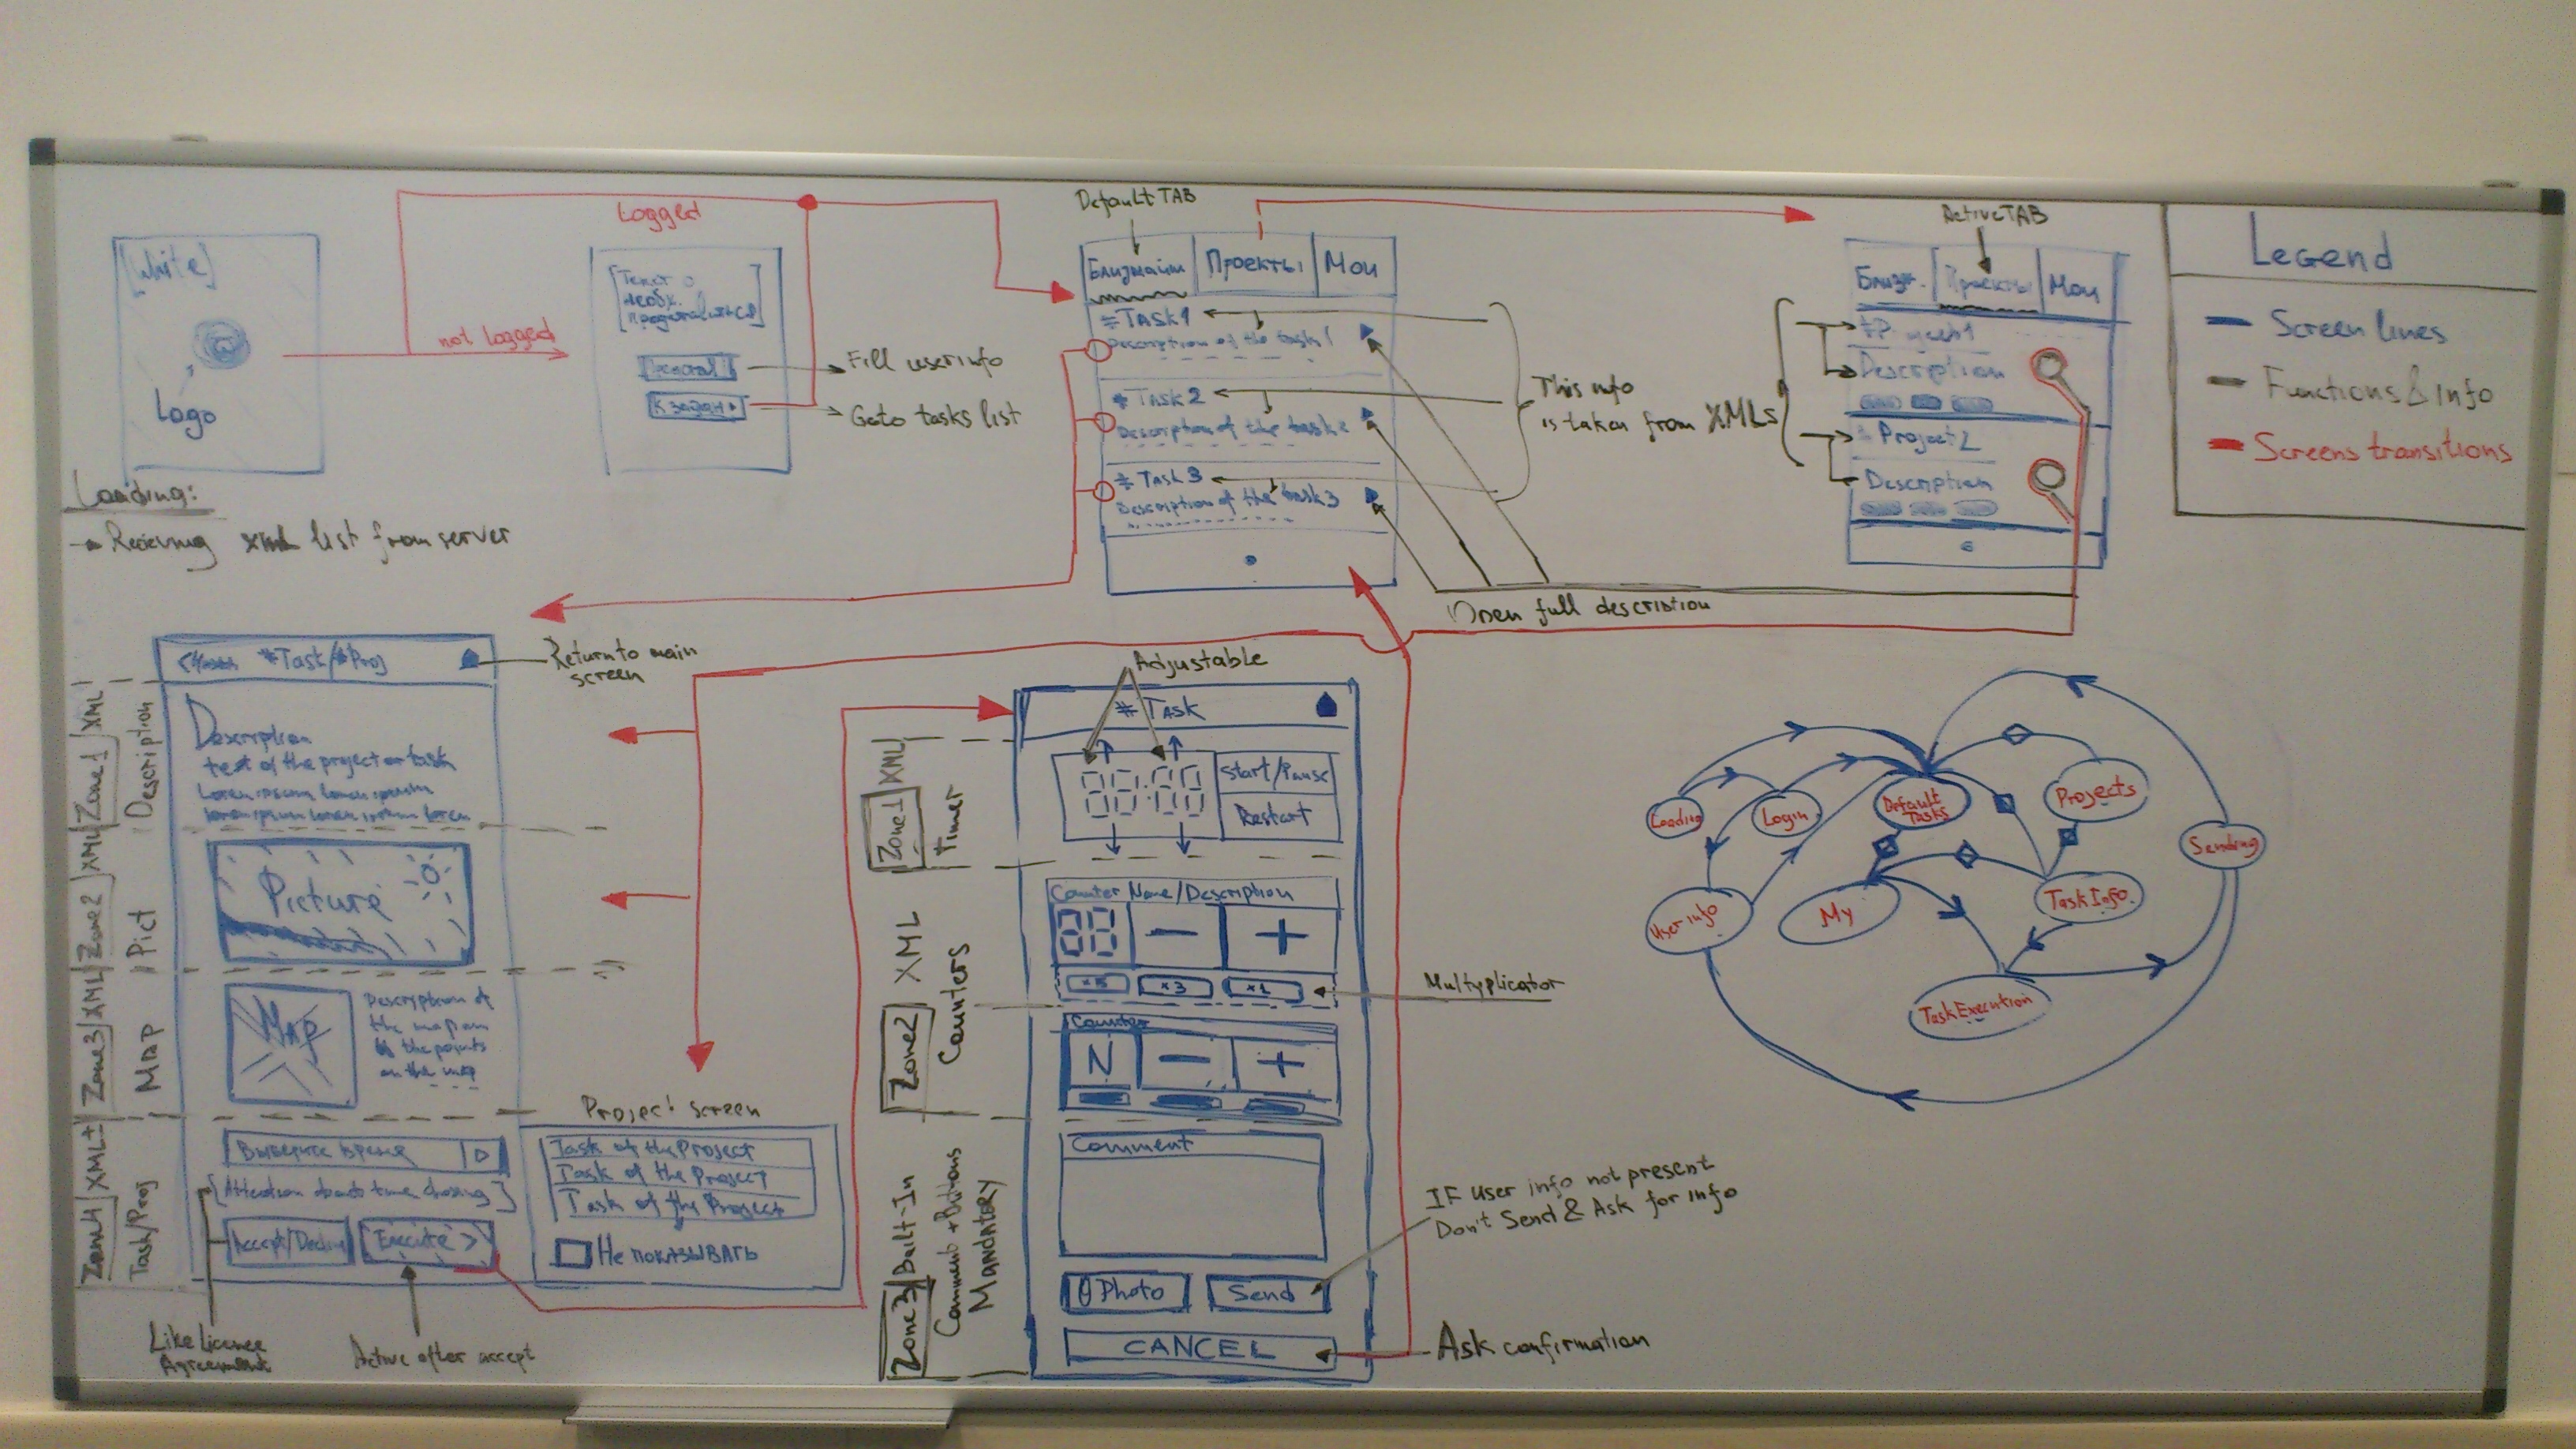 [White]
Logo
Loading:
Recieving XML list from server
Logged
not logged
[Текст о
необх.
К задан
Fill userinfo
Goto tasks list
Default TAB
Ближайш
Проекты
Мои
#Task1
Description of the task1
#Task2
Description of the task2
#Task3
Description of the task3
This info
is taken from XMLs
Open full description
Active TAB
Ближ.
Проекты
Мои
Description
Project2
Description
Legend
Screen lines
Functions & Info
Screens transitions
#Task/#Proj
Return to main
screen
Zone1 XML
Description
Description
text of the project or task
Lorem ipsum lorem ipsum
lorem ipsum lorem ipsum lorem
Zone2 XML
Pict
Picture
Zone3 XML
Map
Map
Description of
the map or
the points
on the map
Zone4 XML±
Task/Proj
Выберите время
[Attention about time chosing]
Accept/Decline
Execute >
Like license
Agreement
Active after accept
Project screen
Task of the Project
Task of the Project
Task of the Project
Не показывать
Adjustable
#Task
Zone1 XML
Timer
88:88
Start/Pause
Restart
Zone2 XML
Counters
Counter Name/Description
88
−
+
x5
x3
x1
Multyplicator
Counter
N
−
+
Zone3 Built-In
Comment + Buttons
Mandatory
Comment
Photo
Send
CANCEL
IF user info not present
Don't Send & Ask for info
Ask confirmation
Loading
Login
Default
Tasks
Projects
Sending
User info
My
Task Info
Task Execution